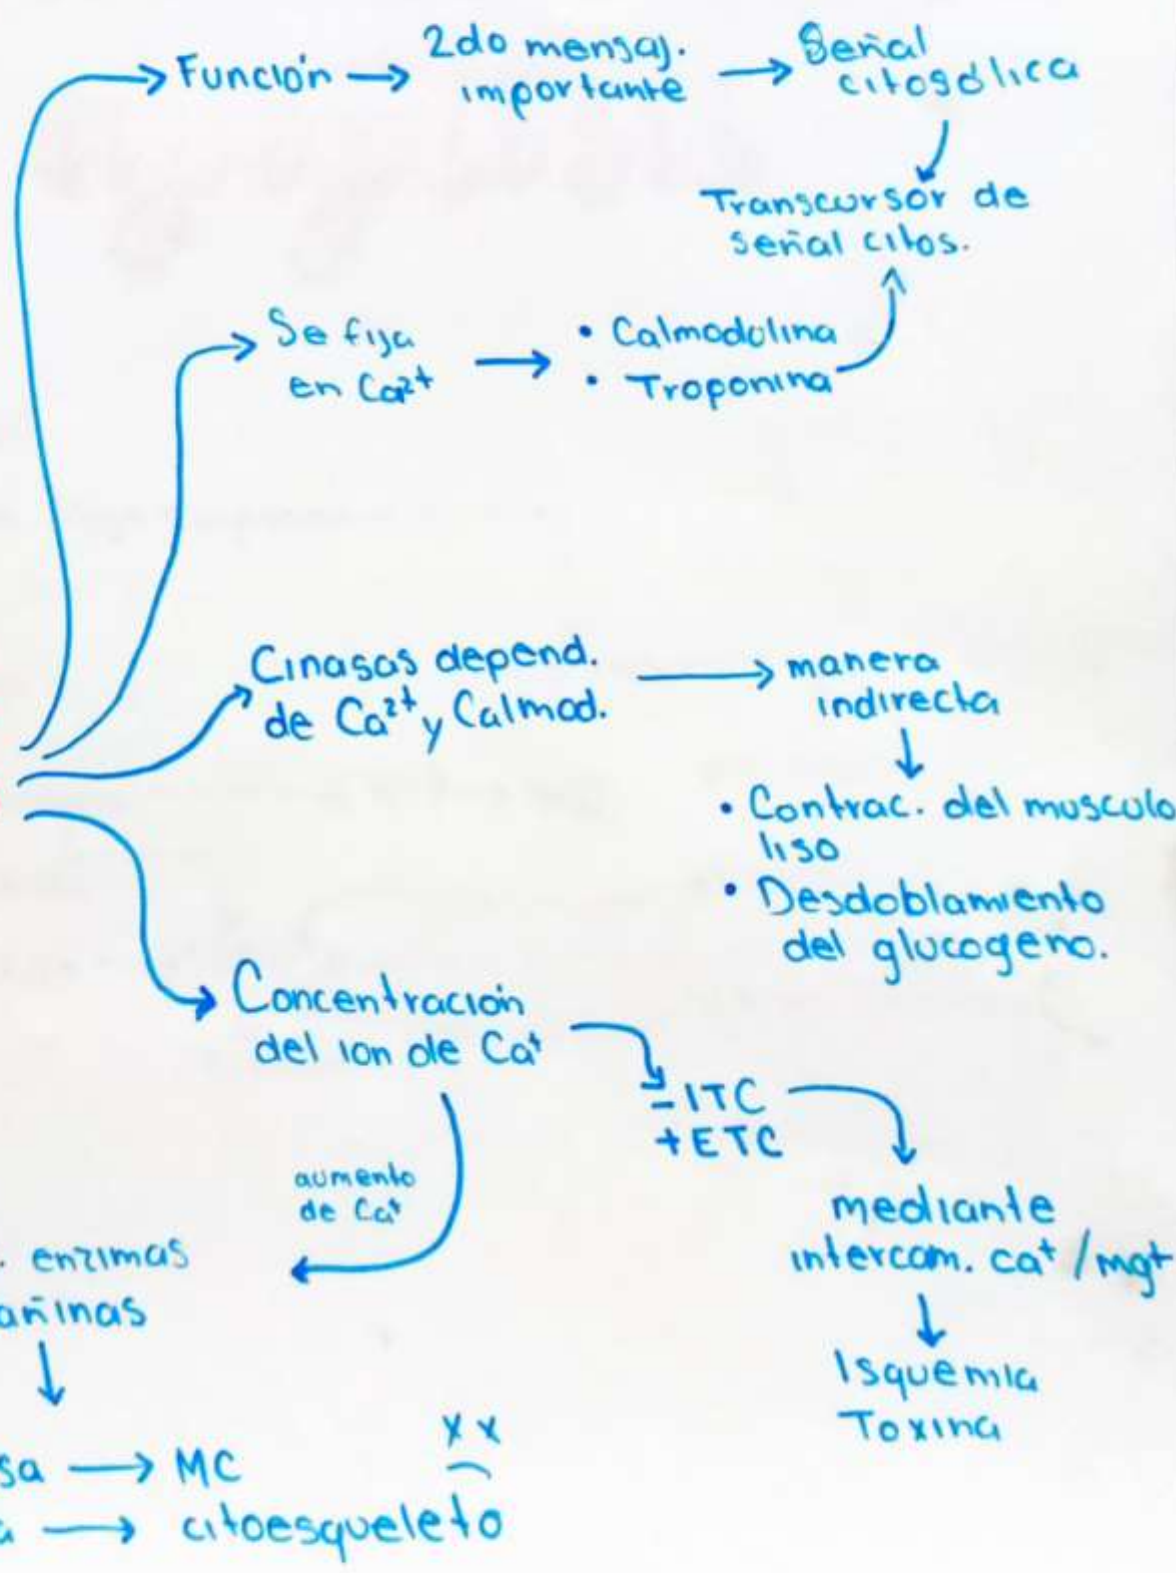 Función
2do mensaj.
importante
Señal
citosólica
Transcursor de
señal citos.
Se fija
en Ca²⁺
• Calmodolina
• Troponina
Cinasas depend.
de Ca²⁺ y Calmod.
manera
indirecta
• Contrac. del musculo
liso
• Desdoblamiento
del glucogeno.
Concentración
del ion de Ca⁺
- ITC
+ ETC
aumento
de Ca⁺
mediante
intercam. ca⁺ / mg⁺
Isquemia
Toxina
. enzimas
añinas
sa → MC
a → citoesqueleto